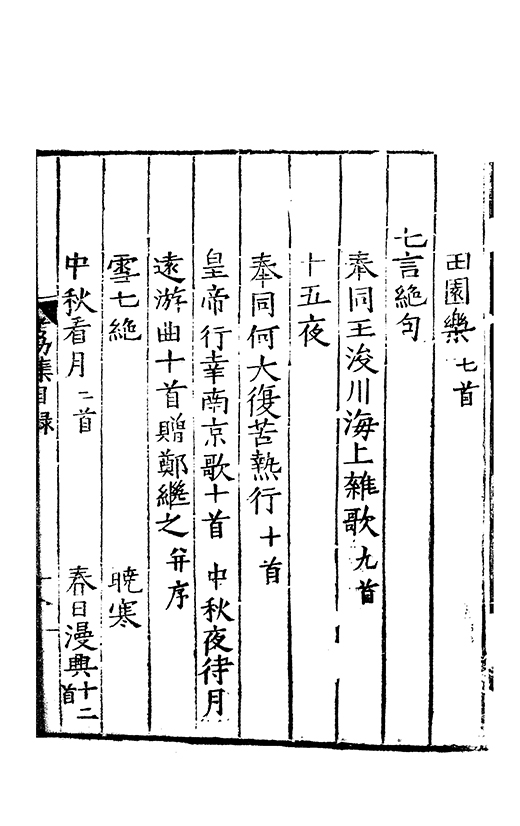 田園樂七首
七言絶句
奉同王浚川海上雜歌九首
十五夜
奉同何大復苦熱行十首
皇帝行幸南京歌十首 中秋夜待月
遠游曲十首贈鄭繼之并序
雪七絶 曉寒
中秋看月二首 春日漫興十二首
集目錄